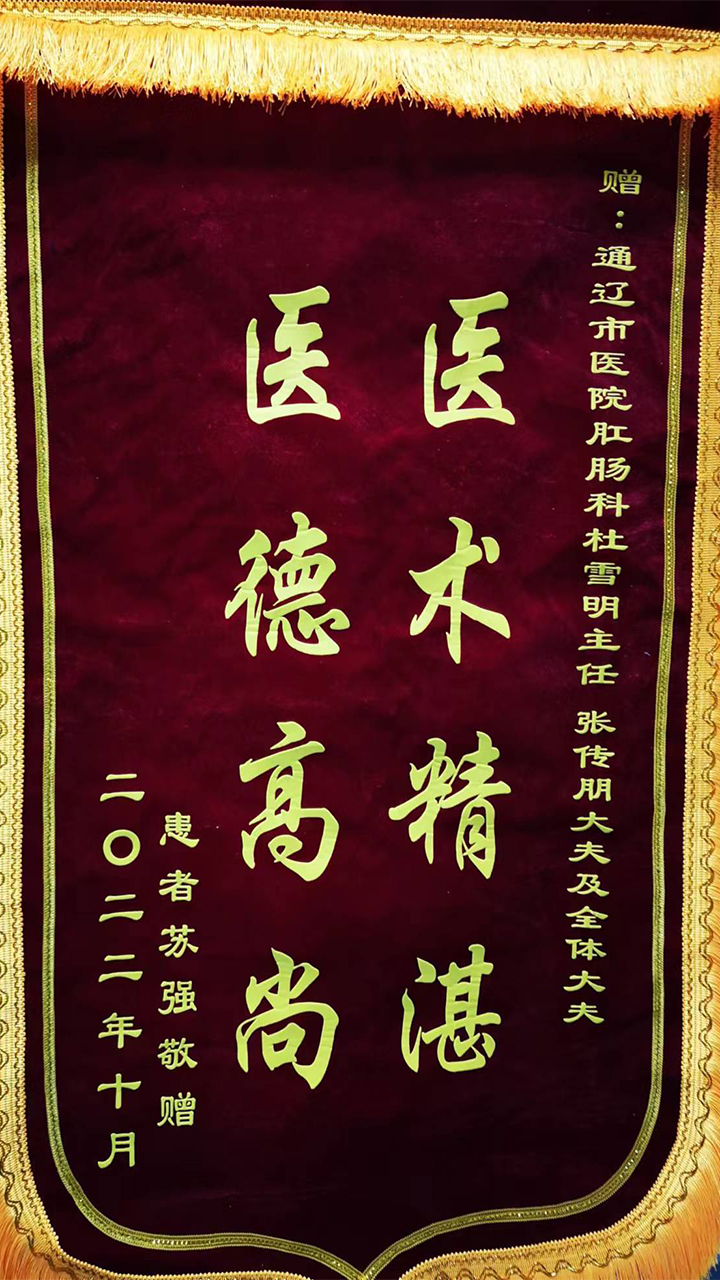 赠：通辽市医院肛肠科杜雪明主任 张传朋大夫及全体大夫
医术精湛
医德高尚
患者苏强敬赠
二〇二二年十月